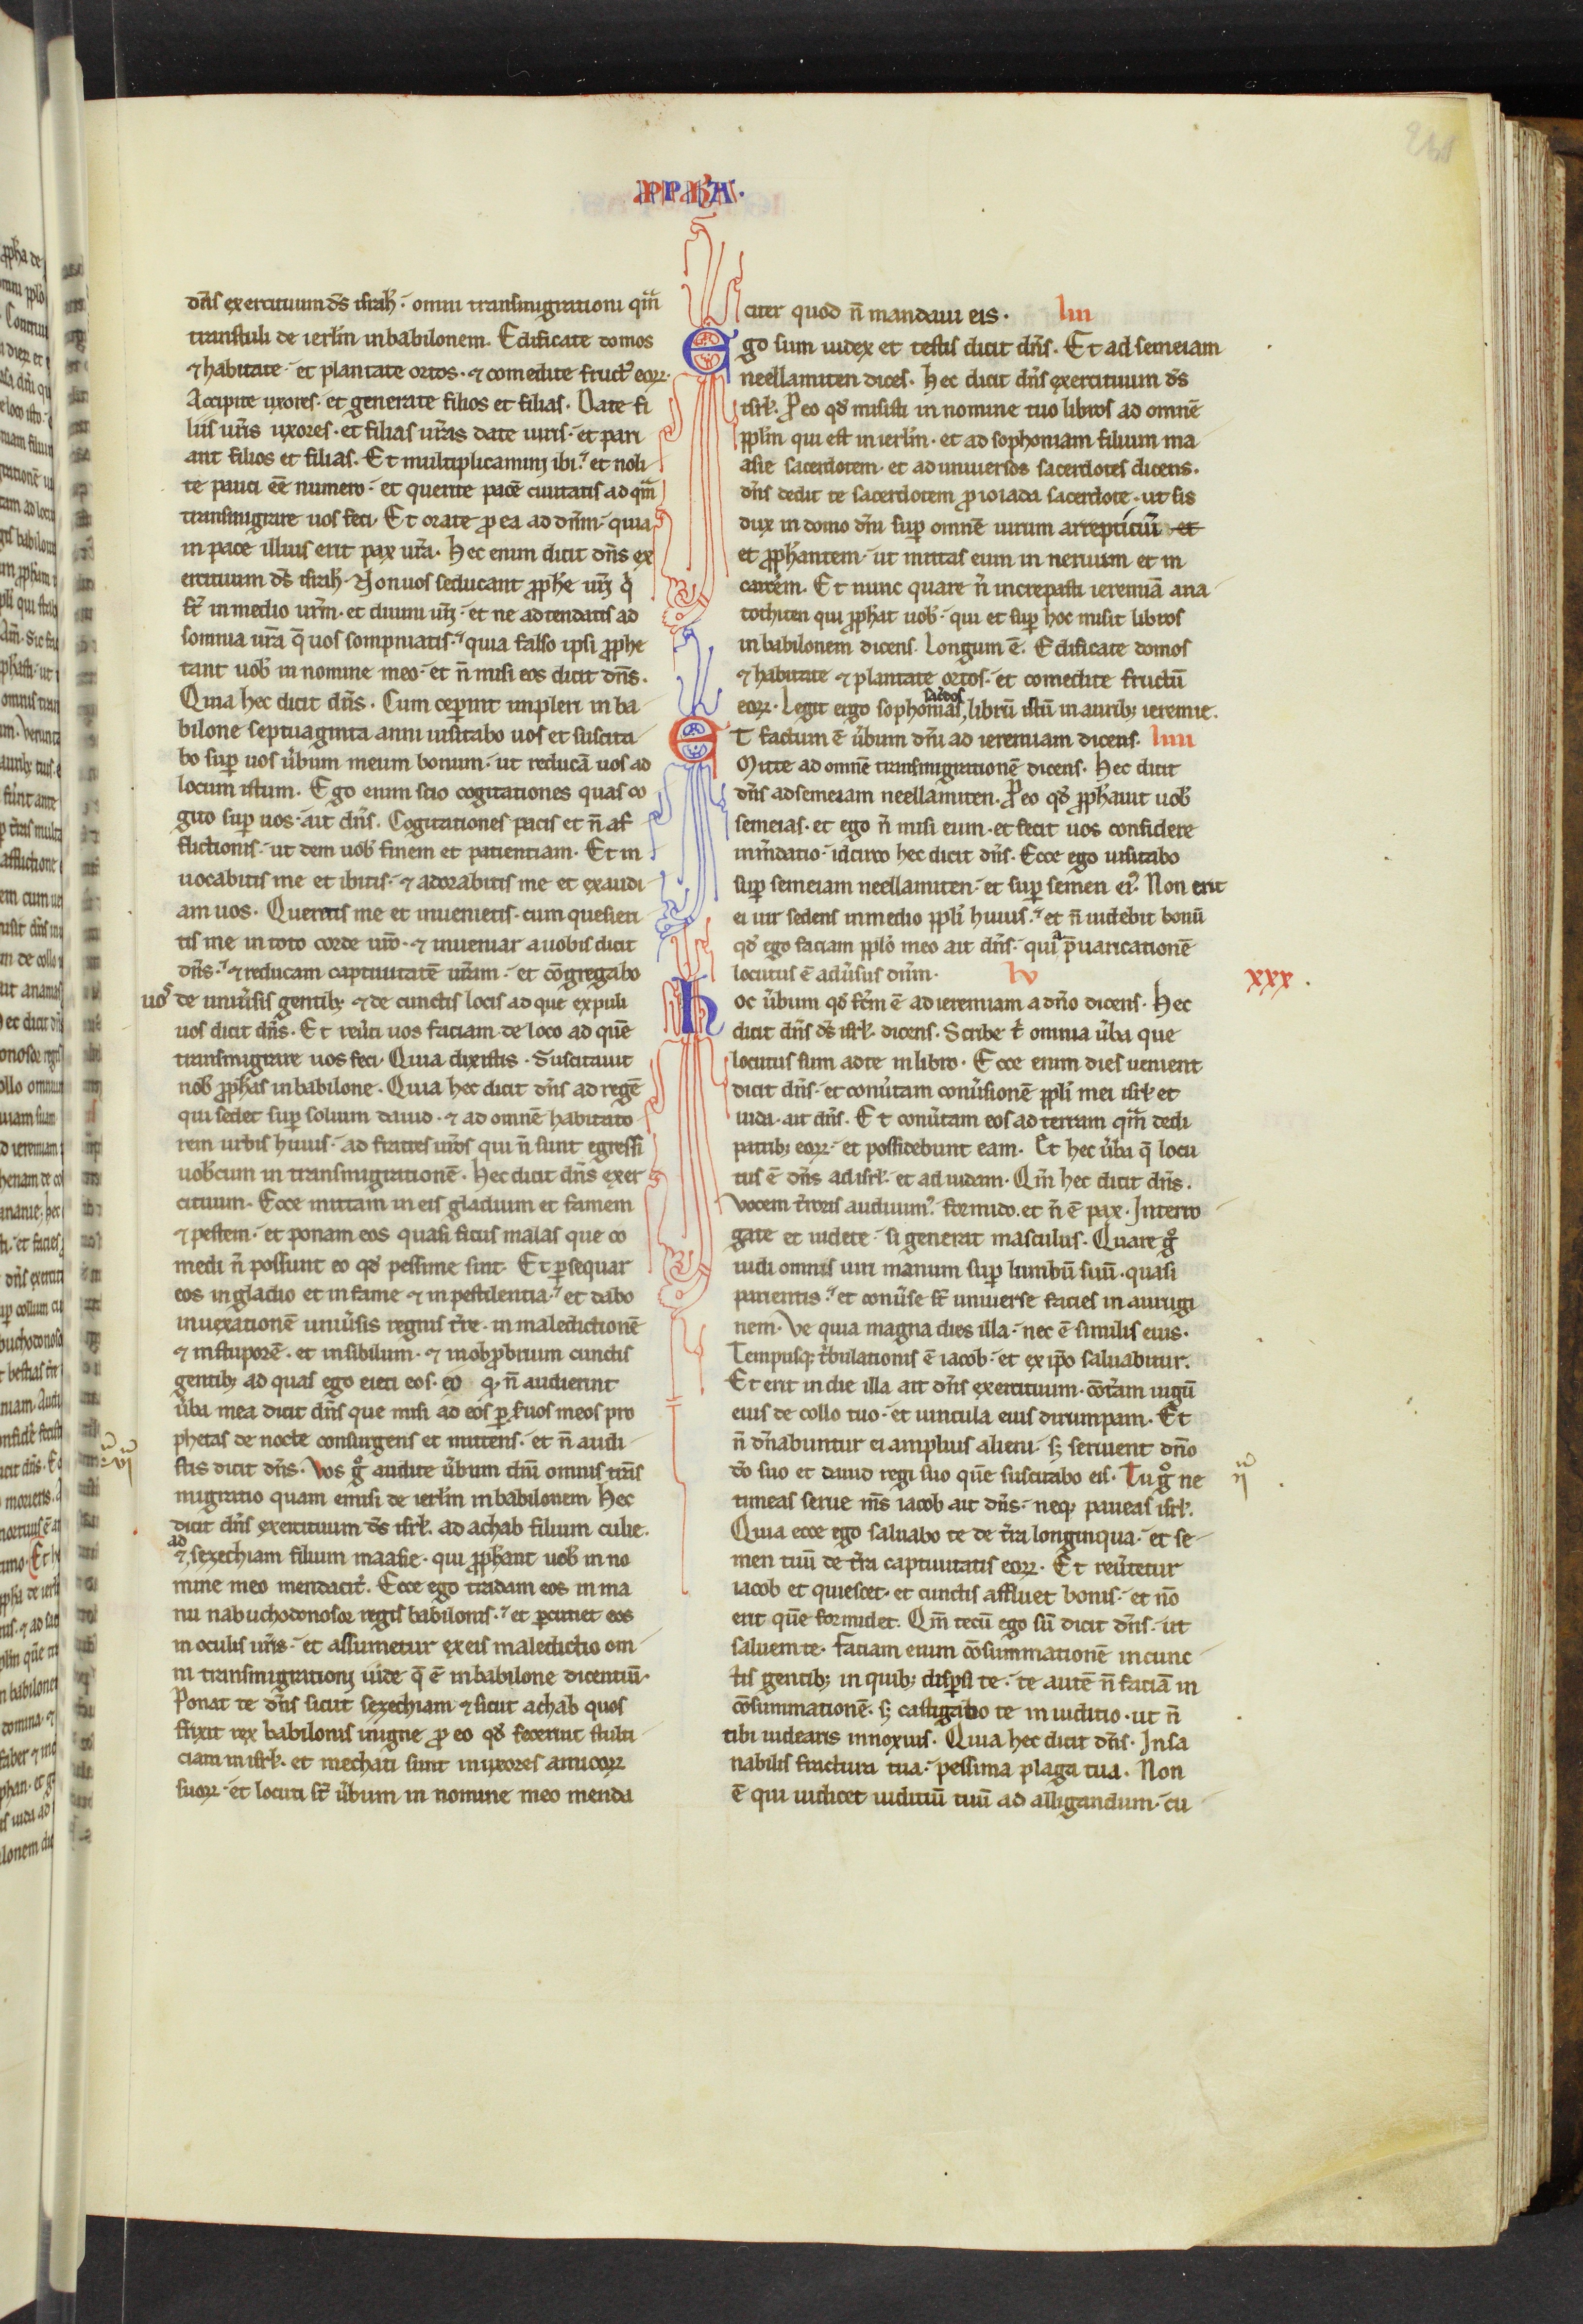 PPHA.
dñs exercituum ds̄ isrl̄. omni transmigrationi qm̄
transtuli de ierl̄m in babilonem. Edificate domos
⁊ habitate. et plantate ortos. ⁊ comedite fruct᷒ eoꝝ.
Accipite uxores. et generate filios et filias. Date fi
liis ur̄is uxores. et filias ur̄as date uiris. et pari
ant filios et filias. Et multiplicamini ibi. et noli
te pauci eē numero. et querite pacē ciuitatis ad qm̄
transmigrare uos feci. Et orate ꝓ ea ad dn̄m. quia
in pace illius erit pax ur̄a. Hec enim dicit dñs ex
ercituum ds̄ isrl̄. Non uos seducant ꝓph̄e ur̄i q̇
st̄ in medio ur̄m. et diuini ur̄i. et ne adtendatis ad
somnia ur̄a q̄ uos sompniatis. quia falso ipsi ꝓphe
tant uob̄ in nomine meo. et n̄ misi eos dicit dñs.
Quia hec dicit dñs. Cum ceperint impleri in ba
bilone septuaginta anni uisitabo uos et suscita
bo sup̱ uos u̇bum meum bonum. ut reducā uos ad
locum istum. Ego enim scio cogitationes quas co
gito sup̱ uos. ait dñs. Cogitationes pacis et n̄ af
flictionis. ut dem uob̄ finem et patientiam. Et in
uocabitis me et ibitis. ⁊ adorabitis me et exaudi
am uos. Queritis me et inuenietis. cum quesieri
tis me in toto corde ur̄o. ⁊ inueniar a uobis dicit
dñs. ⁊ reducam captiuitatē ur̄am. et cōgregabo
uos de uniu̇sis gentibꝫ ⁊ de cunctis locis ad que expuli
uos dicit dñs. Et reu̇ti uos faciam de loco ad quē
transmigrare uos feci. Quia dixistis. Suscitauit
nob̄ ꝓph̄as in babilone. Quia hec dicit dñs ad regē
qui sedet sup̱ solium dauid. ⁊ ad omnē habitato
rem urbis huius. ad fratres ur̄os qui n̄ sunt egressi
uob̄cum in transmigrationē. Hec dicit dñs exer
cituum. Ecce mittam in eis gladium et famem
⁊ pestem. et ponam eos quasi ficus malas que co
medi n̄ possunt eo qd̄ pessime sint. Et ꝑsequar
eos in gladio et in fame ⁊ in pestilentia. et dabo
in uexationē uniu̇sis regnis tr̄e. in maledictionē
⁊ in stuporē. et in sibilum. ⁊ in obꝓbrium cunctis
gentibꝫ ad quas ego eieci eos. eo q. n̄ audierint
u̇ba mea dicit dñs que misi ad eos ꝑ s̄uos meos pro
phetas de nocte consurgens et mittens. et n̄ audi
stis dicit dñs. Vos gͦ audite u̇bum dn̄i omnis trās
migratio quam emisi de ierl̄m in babilonem Hec
dicit dñs exercituum ds̄ isrl̄. ad achab filium culie.
ad
⁊ sezechiam filium maasie. qui ꝓph̄ant uob̄ in no
mine meo mendacit̄. Ecce ego tradam eos in ma
nu nabuchodonosor regis babilonis. et ꝑcutiet eos
in oculis ur̄is. et assumetur ex eis maledictio om
ni transmigrationi iude q̄ ē in babilone dicentiū.
Ponat te dñs sicut sezechiam ⁊ sicut achab quos
frixit rex babilonis in igne ꝓ eo qd̄ fecerint stulti
ciam in isrl̄. et mechati sunt in uxores amicoꝝ
suoꝝ. et locuti st̄ u̇bum in nomine meo menda
vi
citer quod n̄ mandaui eis. liii
Ego sum iudex et testis dicit dñs. Et ad semeiam
neellamiten dices. Hec dicit dñs exercituum ds̄
isrl̄. P eo qd̄ misisti in nomine tuo libros ad omnē
ppl̄m qui est in ierl̄m. et ad sophoniam filium ma
asie sacerdotem. et ad uniuersos sacerdotes dicens.
dñs dedit te sacerdotem ꝓ ioiada sacerdote. ut sis
dux in domo dn̄i sup̱ omnē uirum arrepticiū et
et ꝓph̄antem. ut mittas eum in neruum et in
carcerem. Et nunc quare n̄ increpasti ieremiā ana
tothiten qui ꝓph̄at uob̄. qui et sup̱ hoc misit libros
in babilonem dicens. Longum ē. Edificate domos
⁊ habitate ⁊ plantate ortos. et comedite fructū
sac̄dos
eoꝝ. Legit ergo sophonias librū istū in auribꝫ ieremie.
ET factum ē u̇bum dn̄i ad ieremiam dicens. liiii
Mitte ad omnē transmigrationē dicens. Hec dicit
dñs ad semeiam neellamiten. P eo qd̄ ꝓph̄auit uob̄
semeias. et ego n̄ misi eum. et fecit uos confidere
in m̄datio. idcirco hec dicit dñs. Ecce ego uisitabo
sup̱ semeiam neellamiten. et sup̱ semen ei᷒. Non erit
ei uir sedens in medio ppl̄i huius. et n̄ uidebit bonū
qd̄ ego faciam ppl̄o meo ait dñs. quia p̄uaricationē
locutus ē adu̇sus dn̄m. lv
xxx.
Hoc u̇bum qd̄ fc̄m ē ad ieremiam a dn̄o dicens. Hec
dicit dñs ds̄ isrl̄. dicens. Scribe t̄ omnia u̇ba que
locutus sum ad te in libro. Ecce enim dies uenient
dicit dñs. et conu̇tam conu̇sionē ppl̄i mei isrl̄ et
iuda. ait dñs. Et conu̇tam eos ad terram qm̄ dedi
patribꝫ eoꝝ. et possidebunt eam. Et hec u̇ba q̄ locu
tus ē dñs ad isrl̄. et ad iudam. Qm̄ hec dicit dñs.
Vocem t̄roris audiuim᷒. formido. et n̄ ē pax. Interro
gate et uidete. si generat masculus. Quare gͦ
uidi omnis uiri manum sup̱ lumbū suū. quasi
parientis. et conu̇se st̄ uniuerse facies in aurugi
nem. Ve quia magna dies illa. nec ē similis eius.
Tempusqꝫ t̄bulationis ē iacob. et ex ip̄o saluabitur.
Et erit in die illa ait dñs exercituum. cōt̄am iugū
eius de collo tuo. et uincula eius dirumpam. Et
n̄ dn̄abuntur ei amplius alieni. sꝫ seruient dn̄o
dō suo et dauid regi suo quē suscitabo eis. Tu gͦ ne
timeas serue m̄s iacob ait dñs. neqꝫ paueas isrl̄.
Quia ecce ego saluabo te de tr̄a longinqua. et se
men tuū de tr̄a captiuitatis eoꝝ. Et reu̇tetur
iacob et quiescet. et cunctis affluet bonis. et nō
erit quē formidet. Qm̄ tecū ego sū dicit dñs. ut
saluem te. Faciam enim cōsummationē in cunc
tis gentibꝫ in quibꝫ disꝑsi te. te autē n̄ faciā in
cōsummationē. sꝫ castigabo te in iuditio. ut n̄
tibi uidearis innoxius. Quia hec dicit dñs. Insa
nabilis fractura tua. pessima plaga tua. Non
ē qui iudicet iuditiū tuū ad alligandum. cu